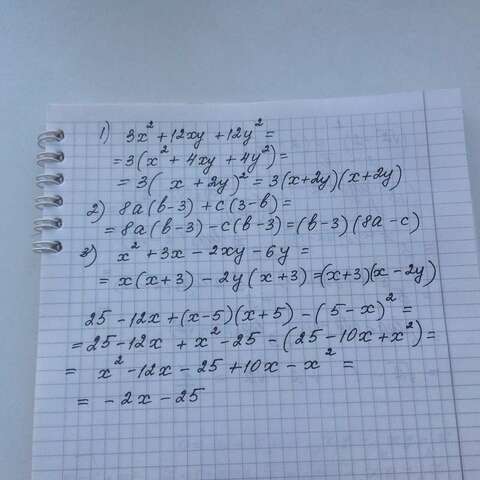 1) 3x² + 12xy + 12y² =
= 3(x² + 4xy + 4y²) =
= 3( x + 2y)² = 3(x+2y)(x+2y)
2) 8a(b-3) + c(3-b) =
= 8a(b-3) - c(b-3) = (b-3)(8a-c)
3) x² + 3x - 2xy - 6y =
= x(x+3) - 2y(x+3) = (x+3)(x-2y)
25 - 12x + (x-5)(x+5) - (5-x)² =
= 25 - 12x + x² - 25 - (25 - 10x + x²) =
= x² - 12x - 25 + 10x - x² =
= - 2x - 25